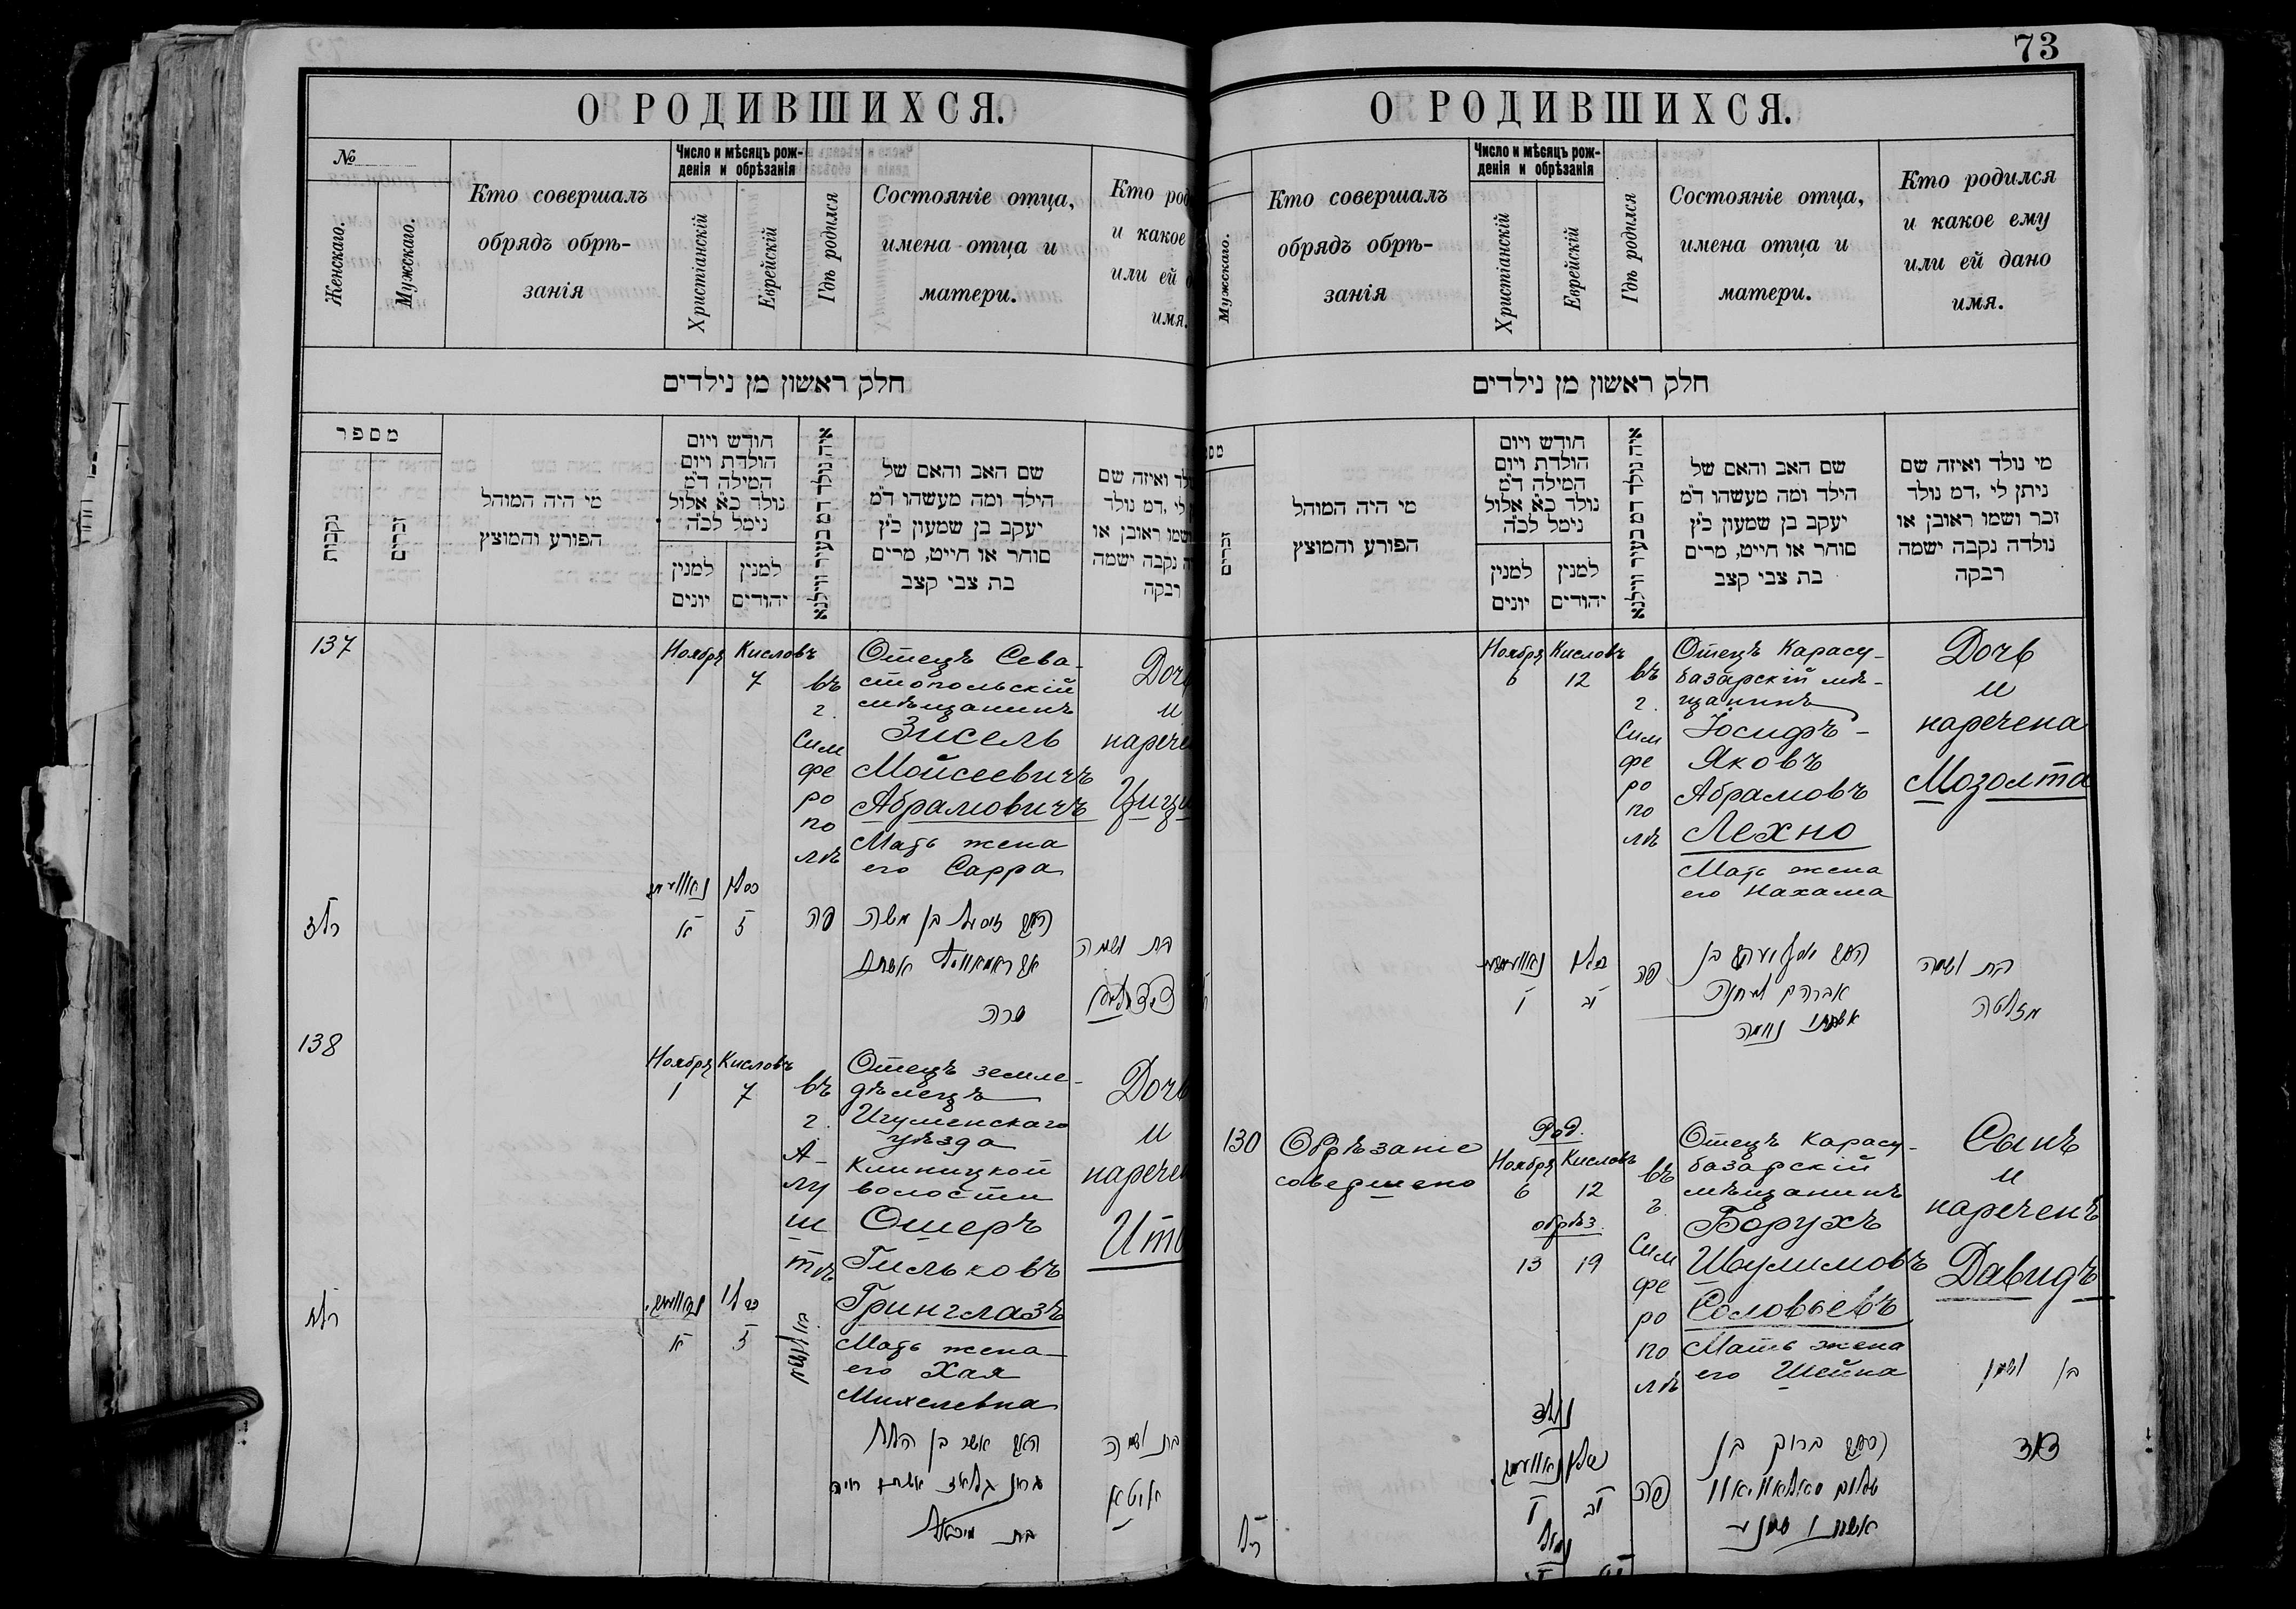 О РОДИВШИХСЯ.
№
Женскаго.
Мужскаго.
Кто совершалъ
обрядъ обрѣ-
занія
Число и мѣсяцъ рож-
денія и обрѣзанія
Христіанскій
Еврейскій
Гдѣ родился
Состояніе отца,
имена отца и
матери.
Кто род
и какое
или ей д
имя.
חלק ראשון מן נילדים
מספר
נקבות
זכרים
מי היה המוהל
הפורע והמוצץ
חודש ויום
הולדת ויום
המילה ד״מ
נולד כ״א אלול
נימל לכ״ה
למנין
יונים
למנין
יהודים
איה נולד דמ בעיר ווילנא
שם האב והאם של
הילד ומה מעשהו ד״מ
יעקב בן שמעון כ״ץ
סוחר או חייט, מרים
בת צבי קצב
לד ואיזה שם
לי ,דמ נולד
ושמו ראובן או
ה נקבה ישמה
רבקה
137
Ноября
1
Кисловъ
7
въ
г.
Сим
фе
ро
по
лѣ
Отецъ Сева-
стопольскій
мѣщанинъ
Зисель
Мойсеевичъ
Абрамовичъ
Мать жена
его Сарра
Доч
и
нарече
Цици
קלז
א
ז
פה
בן משה
שרה
בת ושמה
138
Ноября
1
Кисловъ
7
въ
г.
А-
лу
ш
тѣ
Отецъ земле-
дѣлецъ
Игуменскаго
уѣзда
Клиницкой
волости
Ошеръ
Гильковъ
Гринглазъ
Мать жена
его Хая
Михелевна
Дочь
и
наречен
Ито
קלח
א
ז
אשר בן הלל
גרינגלאז אשתו חיה
בת מיכל
בת ושמה
איטא
73
О РОДИВШИХСЯ.
Мужскаго.
Кто совершалъ
обрядъ обрѣ-
занія
Число и мѣсяцъ рож-
денія и обрѣзанія
Христіанскій
Еврейскій
Гдѣ родился
Состояніе отца,
имена отца и
матери.
Кто родился
и какое ему
или ей дано
имя.
חלק ראשון מן נילדים
מספ
זכרים
מי היה המוהל
הפורע והמוצץ
חודש ויום
הולדת ויום
המילה ד״מ
נולד כ״א אלול
נימל לכ״ה
למנין
יונים
למנין
יהודים
איה נולד דמ בעיר ווילנא
שם האב והאם של
הילד ומה מעשהו ד״מ
יעקב בן שמעון כ״ץ
סוחר או חייט, מרים
בת צבי קצב
מי נולד ואיזה שם
ניתן לי ,דמ נולד
זכר ושמו ראובן או
נולדה נקבה ישמה
רבקה
Ноября
6
Кисловъ
12
въ
г.
Сим
фе
ро
по
лѣ
Отецъ Карасу-
базарскій мѣ-
щанинъ
Іосифъ-
Яковъ
Абрамовъ
Лехно
Мать жена
его Нахама
Дочь
и
наречена
Мозолта
ו
יב
פה
יעקב בן
אברהם
אשתו נחמה
בת ושמה
מזלטה
130
Обрѣзаніе
совершено
Род.
Ноября
6
Кисловъ
12
обрѣз.
13
19
въ
г.
Сим
фе
ро
по
лѣ
Отецъ Карасу-
базарскій
мѣщанинъ
Борухъ
Шулимовъ
Соловьевъ
Мать жена
его Шейна
Сынъ
и
нареченъ
Давидъ
קל
נולד
ו
יב
נימול
פה
ברוך בן
שלום סאלאוויאוו
בן ושמו
דוד